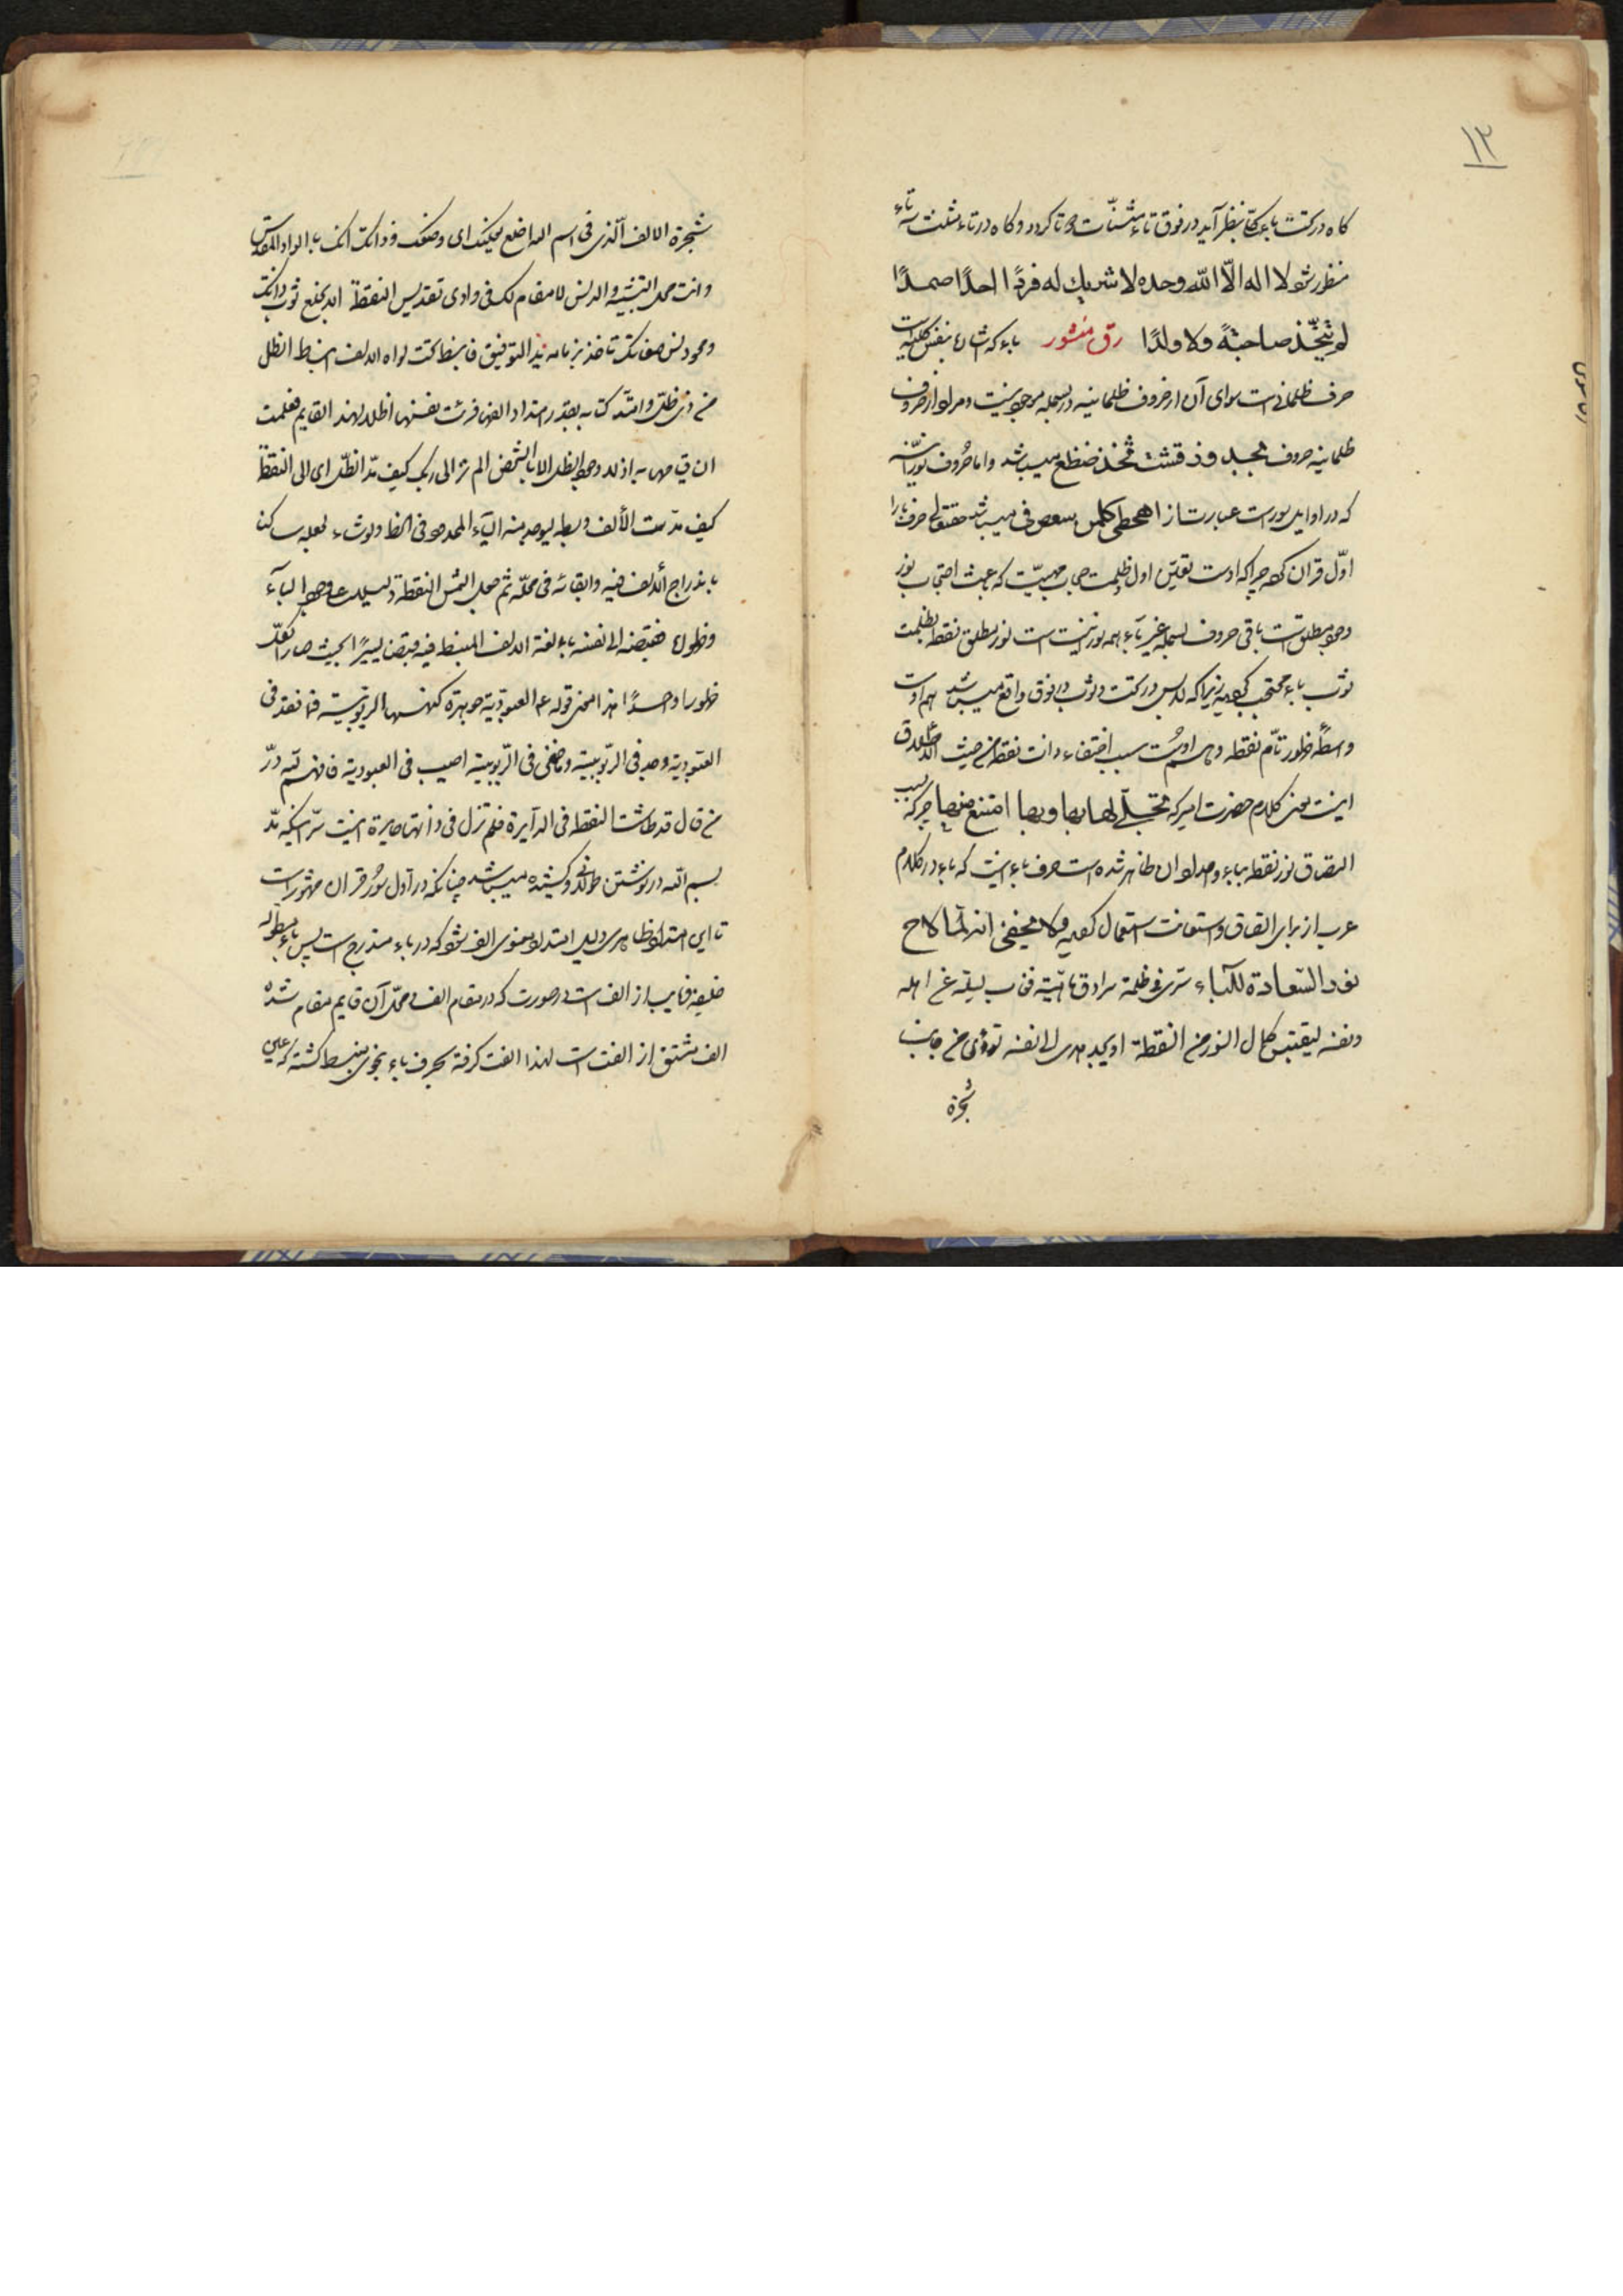 ١٢
کاه در تحت باء یکتا بنظر آید در فوق تاء مثنّات دوتا کردد و کاه در ثاء مثلث سه تاء
منظور شود لا اله الّا اللّه وحده لا شریك له فردًا احدًا صمدًا
لم یتّخذ صاحبةً ولا ولدًا رق منشور باء که بنفس کلیه است
حرف ظلمانی است سوای آن از حروف ظلمانیه در بسمله موجود نیست و مراد از حروف
ظلمانیه حروف بجد وذ قشت ثخذ ضظغ میباشد و اما حُروف نورانیّه
که در اوایل سور است عبارت از اهحطی کلمن سعص فی میباشد حقتعالی حرف باء را
اوّل قرآن کرد چرا که اوست تعیّن اول ظلمت مهیّت که باعث احتجاب نور
وجود مطلق است باقی حروف بسمله غیر باء همه نورانیت است نور مطلق نقطه بظلمت
ثوب باء محتجب کردیده زیرا که لابس در تحت و ثوب در فوق واقع میباشد هم اوست
واسطهٔ ظهور تامّ نقطه و هم اوست سبب اختفاء ذات نقطه من حیث الاطلاق
اینست معنی کلام حضرت امیر که تجلّی لها بها وبها امتنع منها چرا که بسبب
التصاق نور نقطه بباء وجود او ظاهر شده است حرف باء اینست که باء در کلام
عرب از برای الصاق و استعانت استعمال کردیده ولا یخفی انه لمّا لاح
نور السّعادة للباء سری فی ظلمة سرادق مائیّته فغاب لیله عن اهله
ونفسه لیقتبس کمال النور من النقطة او یجد هدی الی نفسه نودی من جانب
شجرة
شجرة الالف الّذی فی اسم الله اخلع نعلیك ای وصفك و ذاتك انك بالواد المقدس
وانت محل التثنیه والدنس لا مقام لك فی وادی تقدیس النقطة الا بخلع ثوب ذاتك
ومحو دنس صفاتك فانبسط تحت لواء الالف انبساط الظل
من ذی ظلّ وامتدّ کتابه بقدر امتداد الف فرئت نفسها ظلا لهذا القایم فعلمت
ان قیامه به اذ لا وجود للظل الا بالشخص الم تر الی ربك کیف مدّ الظّل ای الی النقطة
کیف مدّت الألف وبسطه لیوجد منه الباء الممدود فی الخط ولو شاء لجعله ساکنا
باندراج الألف فیه وابقائه فی محلّه ثم جعل الشمس النقطة دلیلا علی وجود الباء
وظهوره فقبضه الی نفسه الالف المنبسط فیه قبضا یسیرًا بحیث صار الکلّ
ظهورا واحدًا هذا معنی قوله ع العبودیة جوهرة کنهها الربوبیّة فما فقد فی
العبودیة وجد فی الرّبوبیّة وما خفی فی الرّبوبیّة اصیب فی العبودیة فافهم لله درّ
من قال قد طاشت النقطه فی الدایرة فلم تزل فی ذاتها حایرة اینست سرّ اینکه مدّ
بسم الله در نوشتن طولانی و کشیده میباشد چنانکه در اول سُور قرآن مشهور است
تا این امتداد ظاهری دلیل امتداد معنوی الف شود که در باء مندرج است پس باء مطوله
خلیفه و نایب از الف است در صورت که در مقام الف و محلّ آن قایم مقام شده
الف مشتق از الفت است لهذا الفت کرفته بحرف باء بنحوی منبسط کشته که